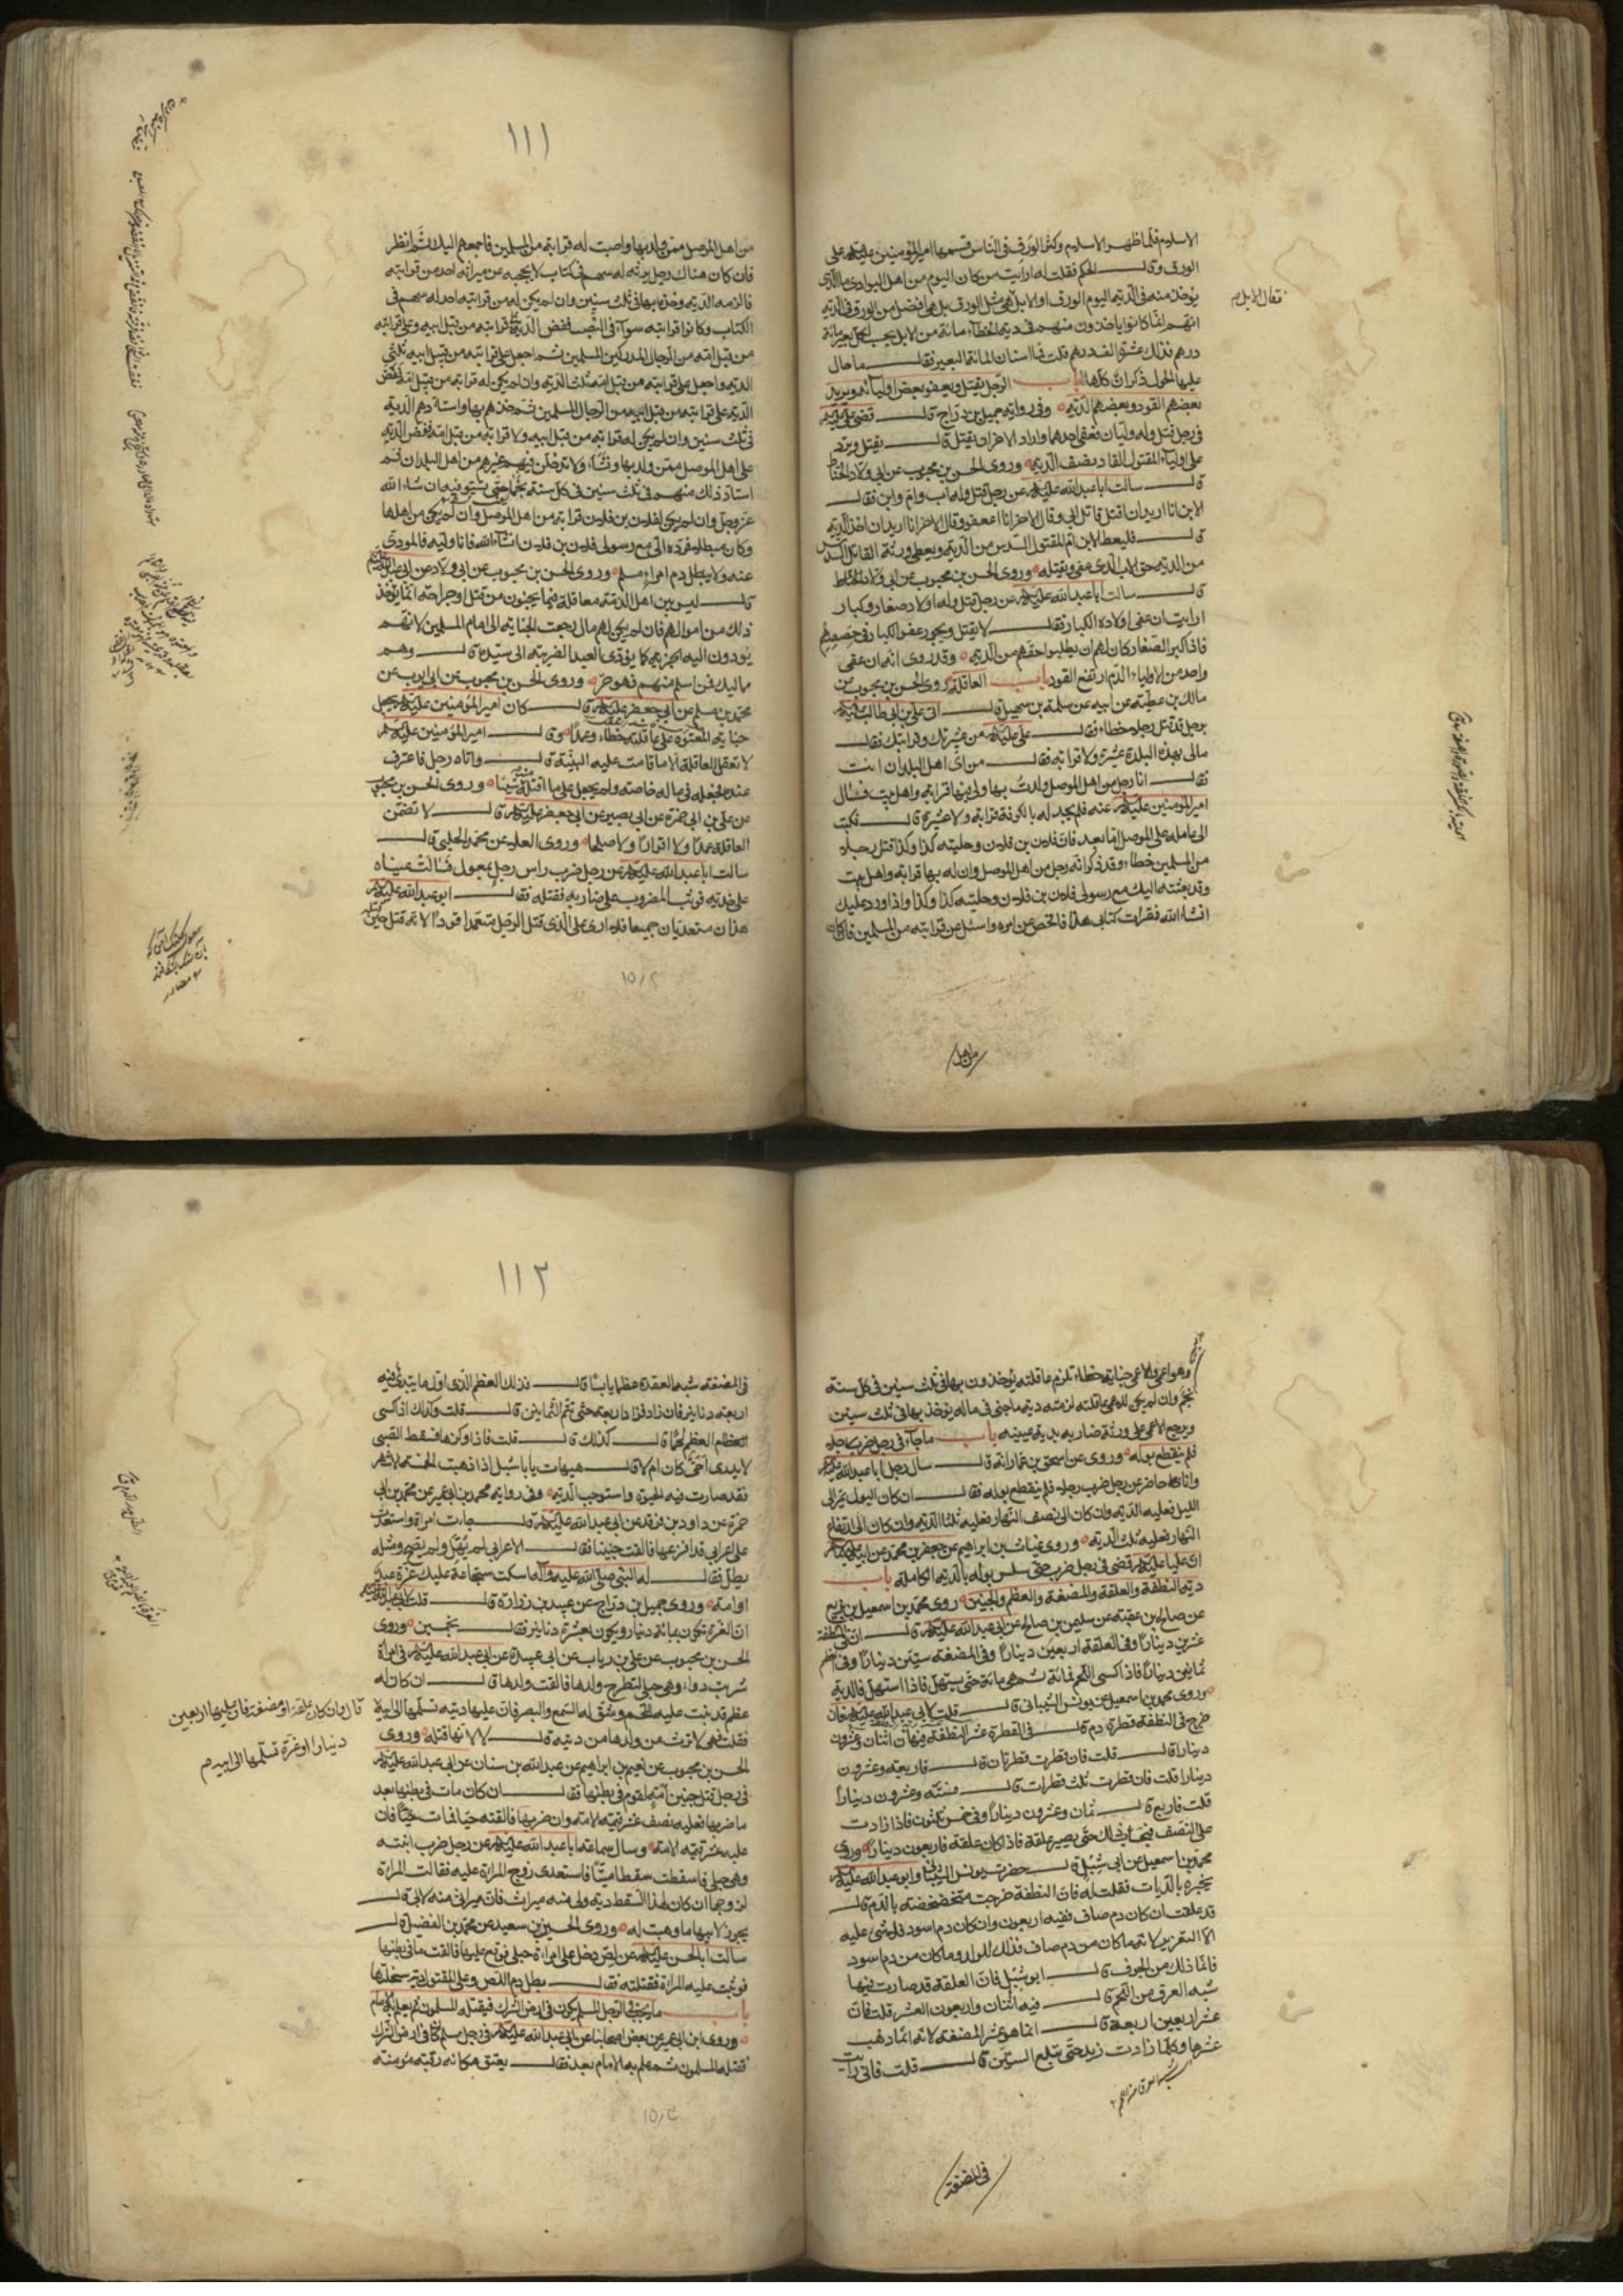 الاسلام فلما ظهر الاسلام وكثر الورق في الناس قسمها امير المؤمنين عليه السلام على
الورق وقال الحكم فقلت له ارايت من كان اليوم من اهل البوادي ما الذي
يؤخذ منه في الدية اليوم الورق او الابل بل هي مثل الورق بل هي افضل من الورق في الدية
فقال الابل
انهم انما كانوا ياخذون منهم في دية الخطاء مائة من الابل يحسب لكل بعير مائة
درهم فذلك عشرة الف درهم قلت فما اسنان المائة البعير فقال ما حال
عليها الحول ذكران كلها باب الرجل يقتل ويعفو بعض اوليائه ويريد
بعضهم القود وبعضهم الدية وفي رواية جميل بن دراج قال قضى
في رجل قتل وله وليان فعفى احدهما واراد الاخر ان يقتل قال يقتل ويرد
على اولياء المقتول القاد نصف الدية وروى الحسن بن محبوب عن ابي ولاد الحناط
قال سالت ابا عبد الله عليه السلام عن رجل قتل وله اب وام وابن فقال
الابن انا اريد ان اقتل قاتل ابي وقال الاخر انا اعفو وقال الاخر انا اريد ان اخذ الدية
قال فليعط الابن ام المقتول السدس من الدية ويعطي ورثة القاتل السدس
من الدية حق الاب الذي عفى ويقتله وروى الحسن بن محبوب عن ابي ولاد الحناط
قال سالت ابا عبد الله عليه السلام عن رجل قتل وله اولاد صغار وكبار
ارايت ان عفى اولاده الكبار فقال لا يقتل ويجوز عفو الكبار في حصصهم
فاذا كبر الصغار كان لهم ان يطلبوا حقهم من الدية وقد روى انه ان عفى
واحد من الاولياء الدم ارتفع القود باب العاقلة روى الحسن بن محبوب عن
مالك بن عطية عن ابيه عن سلمة بن كهيل قال اتى علي بن ابي طالب عليه السلام
برجل قد قتل رجلا خطاء فقال علي عليه السلام من عشيرتك وقرابتك فقال
مالي بهذه البلدة عشيرة ولا قرابة فقال من اى اهل البلدان انت
فقال انا رجل من اهل الموصل ولدت بها ولي بها قرابة واهل بيت فسال
امير المؤمنين عليه السلام عنه فلم يجد له بالكوفة قرابة ولا عشيرة قال فكتب
الى عامله على الموصل اما بعد فان فلان بن فلان وحليته كذا وكذا قتل رجلا
من المسلمين خطاء وقد ذكر انه رجل من اهل الموصل وان له بها قرابة واهل بيت
وقد بعثته اليك مع رسولي فلان بن فلان وحليته كذا وكذا واذا ورد عليك
انشاء الله فقرات كتابي هذا فافحص عن امره واسئل عن قرابته من المسلمين فان كان
من اهل
١١١
من اهل الموصل ممن ولد بها واصبت له قرابة من المسلمين فاجمعهم اليك ثم انظر
فان كان هناك رجل يرثه له سهم في الكتاب لا يحجبه عن ميراثه احد من قرابته
فالزمه الدية وخذه بها في ثلث سنين وان لم يكن له من قرابته احد له سهم في
الكتاب وكانوا قرابته سواء في النسب ففض الدية على قرابته من قبل ابيه وعلى قرابته
من قبل امه من الرجال المدركين المسلمين ثم اجعل على قرابته من قبل ابيه ثلثي
الدية واجعل على قرابته من قبل امه ثلث الدية وان لم يكن له قرابة من قبل امه ففض
الدية على قرابته من قبل ابيه من الرجال المسلمين ثم خذهم بها واستادهم الدية
في ثلث سنين وان لم يكن له قرابة من قبل ابيه ولا قرابة من قبل امه ففض الدية
على اهل الموصل ممن ولد بها ونشاء ولا تدخلن فيهم غيرهم من اهل البلدان ثم
استاد ذلك منهم في ثلث سنين في كل سنة نجما حتى تستوفيه ان شاء الله
عز وجل وان لم يكن لفلان بن فلان قرابة من اهل الموصل وان لم يكن من اهلها
وكان مبطلا فرده الي مع رسولي فلان بن فلان انشاء الله فانا وليه فالمودي
عنه ولا يطل دم امرء مسلم وروى الحسن بن محبوب عن ابي ولاد عن ابي عبد الله عليه السلام
قال ليس بين اهل الذمة معاقلة فيما يجنون من قتل او جراحة انما يؤخذ
ذلك من اموالهم فان لم يكن لهم مال رجعت الجناية الى امام المسلمين لانهم
يودون اليه الجزية كما يؤدى العبد الضريبة الى سيده قال وهم
مماليك فمن اسلم منهم فهو حر وروى الحسن بن محبوب عن ابي ايوب عن
محمد بن مسلم عن ابي جعفر عليه السلام قال كان امير المؤمنين عليه السلام يجعل
جناية المعتوه على عاقلته خطاء وعمدا وقال امير المؤمنين عليه السلام
لا تعقل العاقلة الا ما قامت عليه البينة قال واتاه رجل فاعترف
عنده فجعله في ماله خاصة ولم يجعل على عاقلته شيئا وروى الحسن بن محبوب
عن علي بن ابي حمزة عن ابي بصير عن ابي جعفر عليه السلام قال لا تضمن
العاقلة عمدا ولا اقرارا ولا صلحا وروى العلاء عن محمد الحلبي قال
سالت ابا عبد الله عليه السلام عن رجل ضرب راس رجل بمعول فسالت عيناه
على خديه فوثب المضروب على ضاربه فقتله فقال ابو عبد الله عليه السلام
هذان متعديان جميعا فلا ارى على الذي قتل الرجل متعمدا قودا لانه قتل حين
وهو اعمى والاعمى جنايته خطاء تلزم عاقلته يؤخذون بها في ثلث سنين في كل سنة
نجم وان لم يكن للاعمى عاقلة لزمته دية ما جنى في ماله يؤخذ بها في ثلث سنين
ويرجع الاعمى على ورثة ضاربه بدية عينيه باب ما جاء في رجل ضرب رجلا
فلم ينقطع بوله وروى عن اسحق بن عمار انه قال سال رجل ابا عبد الله عليه السلام
وانا حاضر عن رجل ضرب رجلا فلم ينقطع بوله فقال ان كان البول يمر الى
الليل فعليه الدية وان كان الى نصف النهار فعليه ثلثا الدية وان كان الى ارتفاع
النهار فعليه ثلث الدية وروى غياث بن ابراهيم عن جعفر بن محمد عن ابيه عليهما السلام
ان عليا عليه السلام قضى في رجل ضرب حتى سلس بوله بالدية الكاملة باب
دية النطفة والعلقة والمضغة والعظم والجنين روى محمد بن اسمعيل بن بزيع
عن صالح بن عقبة عن سليمن بن صالح عن ابي عبد الله عليه السلام قال ان في النطفة
عشرين دينارا وفي العلقة اربعين دينارا وفي المضغة ستين دينارا وفي العظم
ثمانين دينارا فاذا كسى اللحم فمائة ثم هي مائة حتى يستهل فاذا استهل فالدية
وروى محمد بن اسمعيل عن يونس الشيباني قال قلت لابي عبد الله عليه السلام فان
خرج في النطفة قطرة دم قال في القطرة عشر النطفة فيها اثنان وعشرون
دينارا قال قلت فان قطرت قطرتان قال فاربعة وعشرون
دينارا قلت فان قطرت ثلث قطرات قال فستة وعشرون دينارا
قلت فاربع قال ثمان وعشرون دينارا وفي خمس ثلثون فاذا زادت
على النصف فبحساب ذلك حتى يصير علقة فاذا كان علقة فاربعون دينارا وروى
محمد بن اسمعيل عن ابي شبل قال حضرت يونس الشيباني وابو عبد الله عليه السلام
يخبره بالديات فقلت له فان النطفة خرجت متخضخضة بالدم قال
قد علقت ان كان دم صاف ففيه اربعون وان كان دم اسود فلا شيء عليه
الا التعزير لانه ما كان من دم صاف فذلك للولد وما كان من دم اسود
فانما ذلك من الجوف قال ابو شبل فان العلقة قد صارت فيها
شبه العرق من اللحم قال فيه اثنان واربعون العشر قلت فان
عشر اربعين اربعة قال انما هو عشر المضغة لانه انما ذهب
عشرها وكلما زادت زيد حتى تبلغ الستين قال قلت فاني رايت
في المضغة
١١٢
في المضغة شبه العقدة عظما يابسا قال فذلك العظم الذي اول ما يبتدئ فيه
اربعة دنانير فان زاد فزاد اربعة حتى تتم الثمانين قال قلت وكذلك اذا كسى
العظم لحما قال كذلك قال قلت فاذا وكزها فسقط الصبي
لا يدرى احي كان ام لا قال هيهات يا با شبل اذا ذهبت الخمسة الاشهر
فقد صارت فيه الحيوة واستوجب الدية وفي رواية محمد بن ابي عمير عن محمد بن ابي
حمزة عن داود بن فرقد عن ابي عبد الله عليه السلام قال جاءت امراة واستعدت
على اعرابي قد افزعها فالقت جنينا فقال الاعرابي لم يهل ولم يصح ومثله
يطل فقال له النبي صلى الله عليه وآله اسكت سجاعة عليك غرة عبد
او امة وروى جميل بن دراج عن عبيد بن زرارة قال قلت لابي عبد الله عليه السلام
ان الغرة تكون بمائة دينار ويكون بعشرة دنانير فقال بخمسين وروى
الحسن بن محبوب عن علي بن رياب عن ابي عبيدة عن ابي عبد الله عليه السلام في امراة
شربت دواء وهي حبلى لتطرح ولدها فالقت ولدها قال ان كان له
عظم قد نبت عليه اللحم وشق له السمع والبصر فان عليها دية تسلمها الى ابيه
قال وان كان علقة او مضغة فان عليها اربعين
دينارا او غرة تسلمها الى ابيه
فقلت فهي لا ترث من ولدها من ديته قال لا لانها قتلته وروى
الحسن بن محبوب عن نعيم بن ابراهيم عن عبد الله بن سنان عن ابي عبد الله عليه السلام
في رجل قتل جنين امة لقوم في بطنها فقال ان كان مات في بطنها بعد
ما ضربها فعليه نصف عشر قيمة الامة وان ضربها فالقته حيا فمات فان
عليه عشر قيمة الامة وسال سماعة ابا عبد الله عليه السلام عن رجل ضرب ابنته
وهي حبلى فاسقطت سقطا ميتا فاستعدى زوج المراة عليه فقالت المراة
لزوجها ان كان لهذا السقط دية ولي منه ميراث فان ميراثي منه لابي قال
يجوز لابيها ما وهبت له وروى الحسين بن سعيد عن محمد بن الفضيل قال
سالت ابا الحسن عليه السلام عن لص دخل على امراة حبلى فوقع عليها فالقت ما في بطنها
فوثبت عليه المراة فقتلته فقال يطل دم اللص وعلى المقتول دية سخلتها
باب ما يجب في الرجل المسلم يكون في ارض الشرك فيقتله المسلمون ثم يعلم به الامام
وروى ابن ابي عمير عن بعض اصحابنا عن ابي عبد الله عليه السلام في رجل مسلم كان في ارض الشرك
فقتله المسلمون ثم علم به الامام بعد فقال يعتق مكانه رقبة مؤمنة